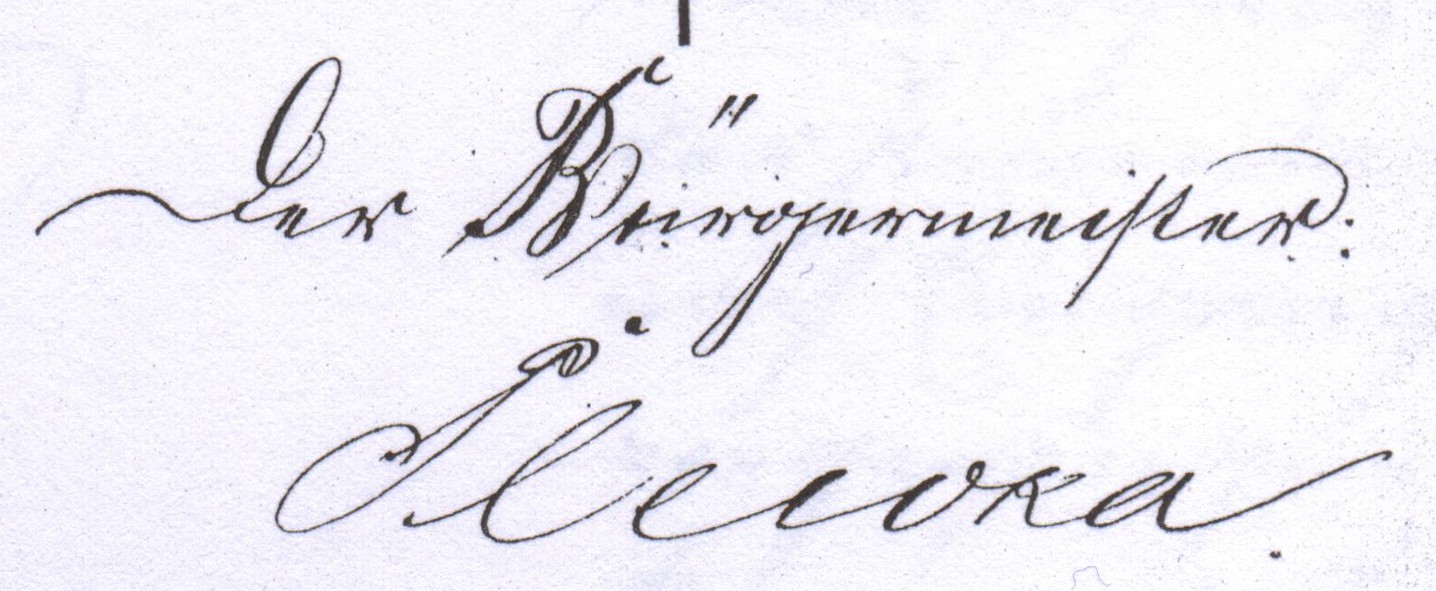 Der Bürgermeister:
Slewka.